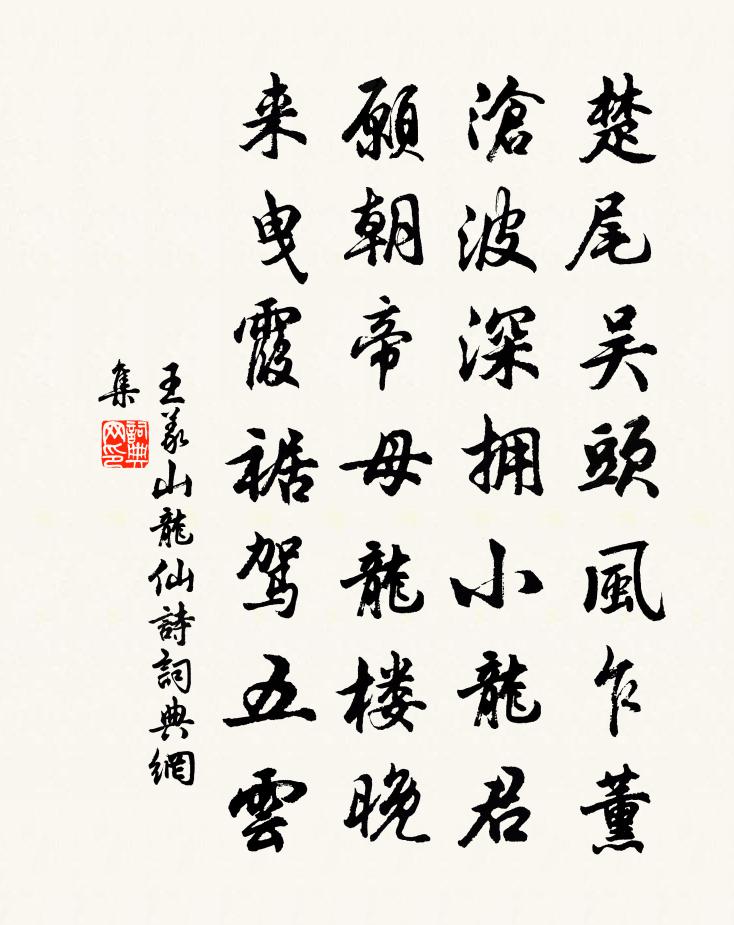 楚尾吴頭風乍薰
滄波深拥小龍君
願朝帝母龍楼晚
来曳霞裾驾五雲
王義山龍仙詩詞典網
集
詞典网印